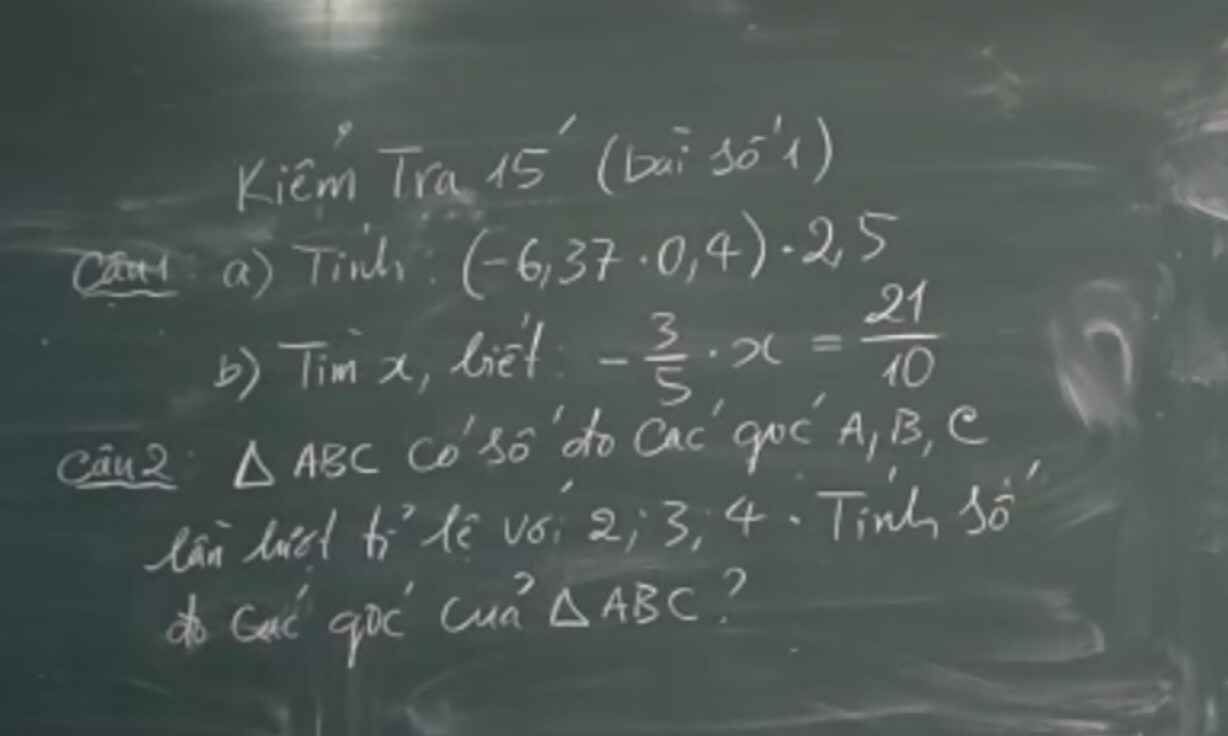 Kiểm Tra 15' (bài số 1)
Câu 1: a) Tính: (-6,37 · 0,4) · 2,5
b) Tìm x, biết: -3/5 · x = 21/10
Câu 2: Δ ABC có số đo các góc A, B, C
lần lượt tỉ lệ với 2; 3; 4. Tính số
đo các góc của Δ ABC?